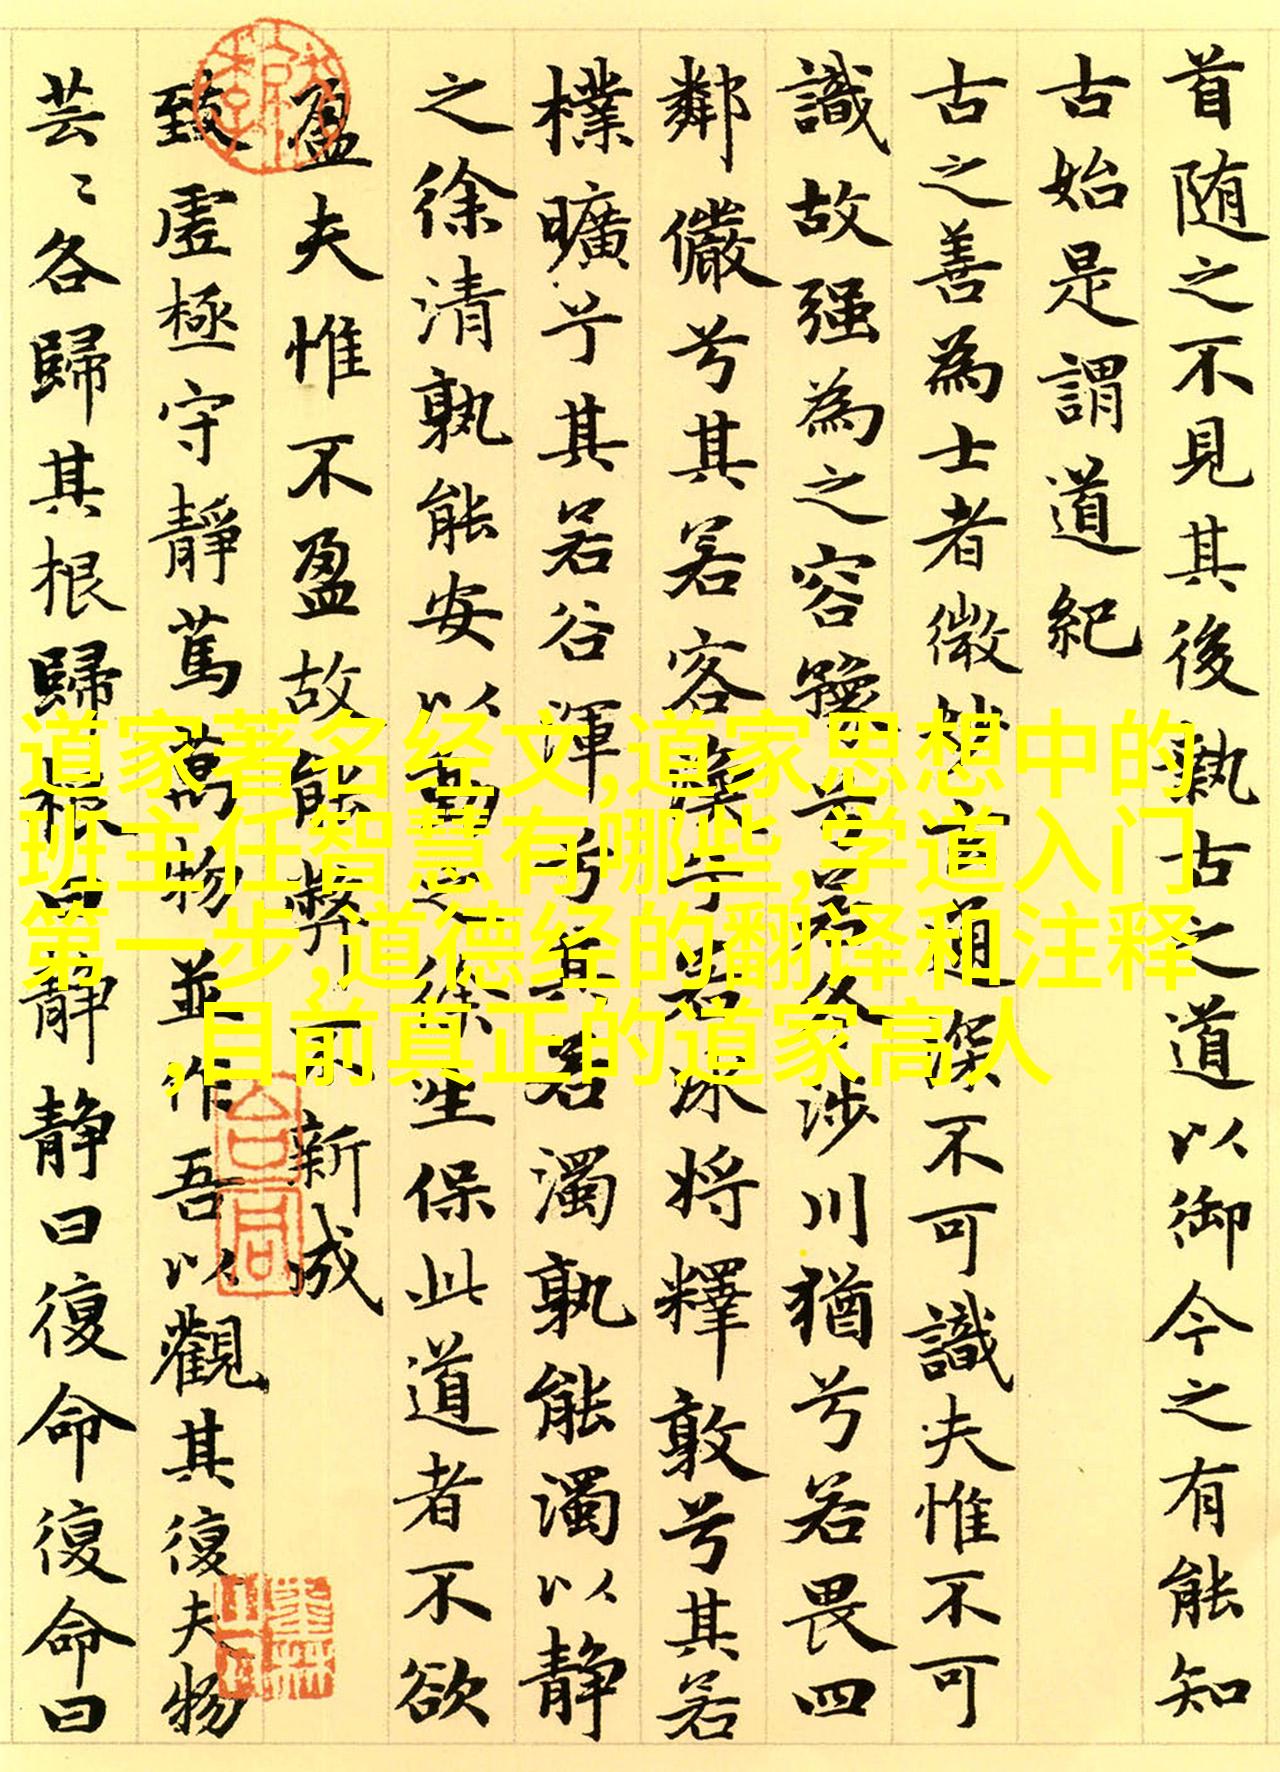 首随之不見其後執古之道以御今之有能知
古始是謂道紀
古之善為士者微妙玄通深不可識夫惟不可
識故强為之容豫兮若冬涉川猶兮若畏四
鄰儼兮其若客渙兮若冰將釋敦兮其若
樸曠兮其若谷渾兮其若濁孰能濁以静
之徐清孰能安以動之徐生保此道者不欲
盈夫惟不盈故能弊不新成
致虛極守靜篤萬物並作吾以觀其復夫物
芸〻各歸其根歸根曰静静曰復命復命曰
道家著名经文,道家思想中的
班主任智慧有哪些,学道入门
第一步,道德经的翻译和注释
,目前真正的道家高人